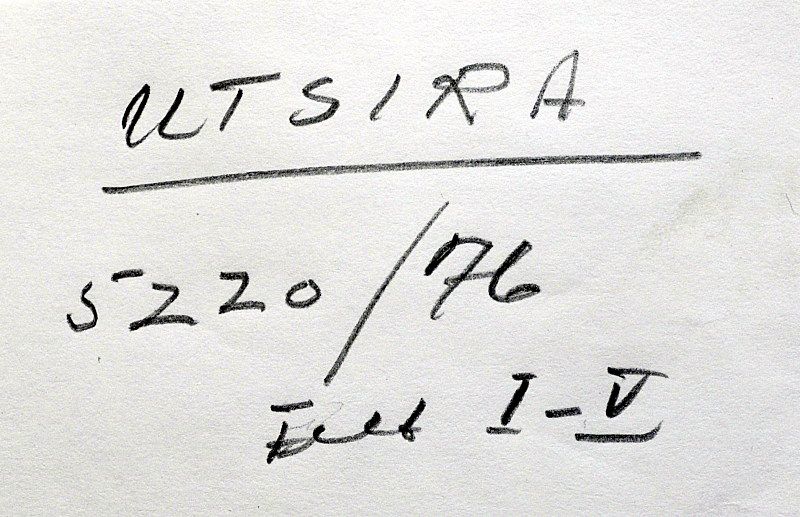 UTSIRA
5220/76
Felt I-V